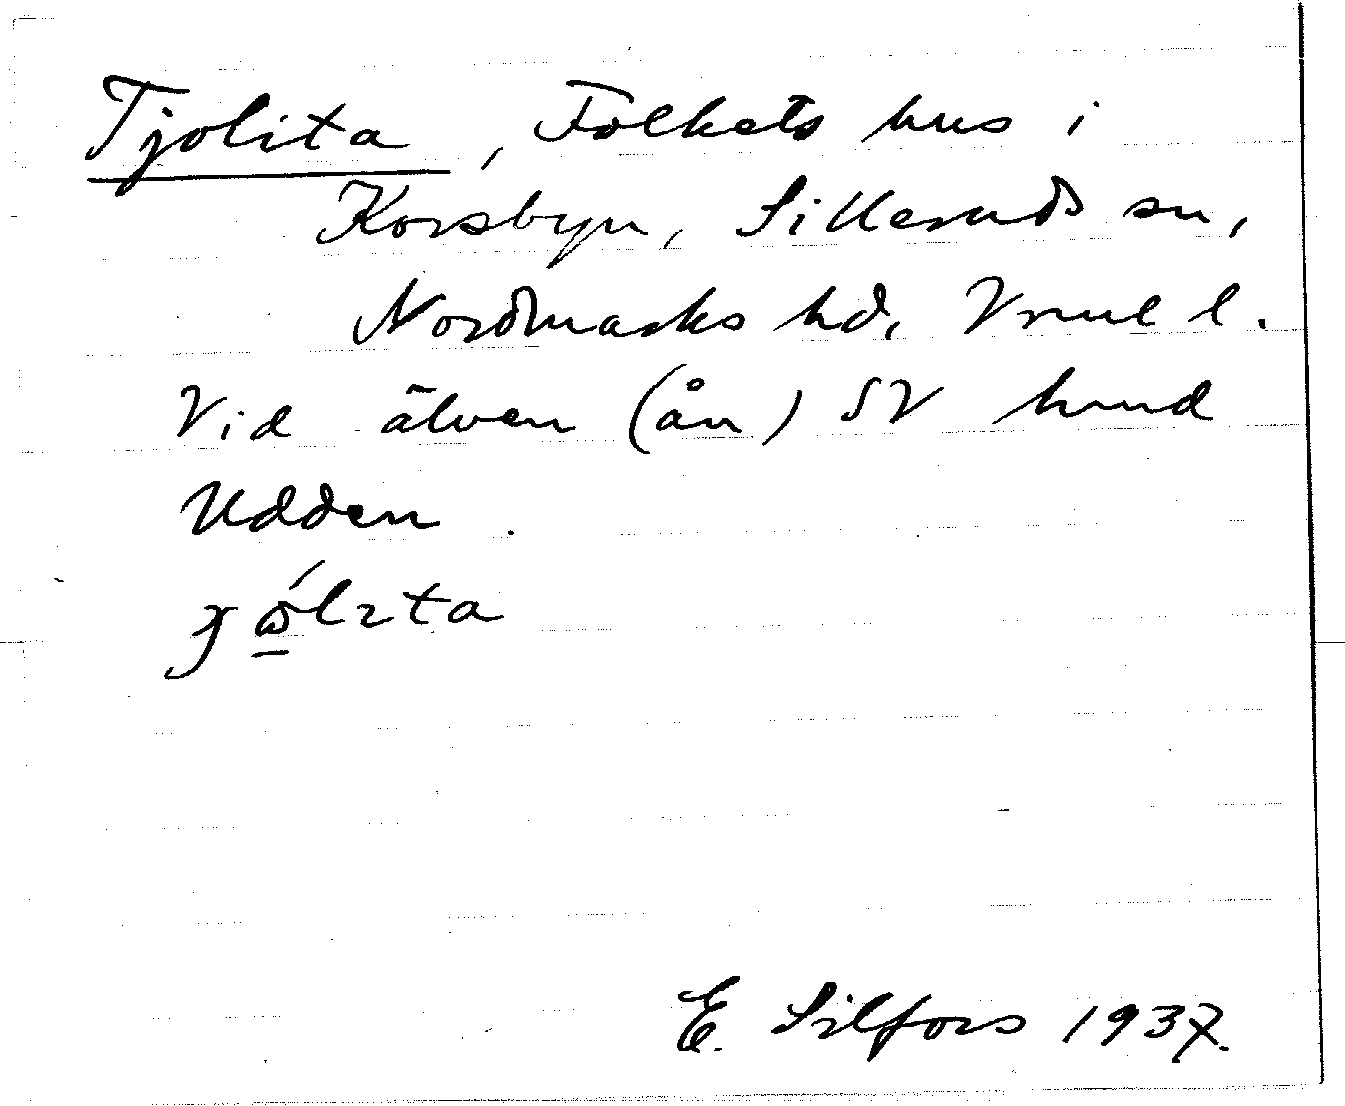 Tjolita, Folkets hus i
Korsbyn, Silleruds sn,
Nordmarks hd, Vrml l.
Vid älven (ån) SV hmd
Udden.
E. Silfors 1937.